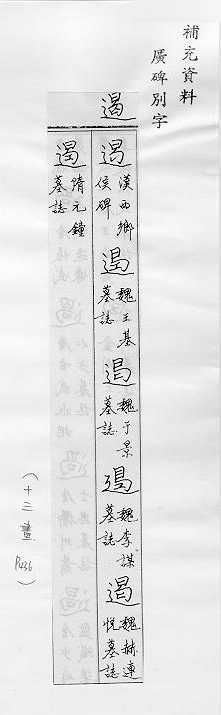 補充資料
廣碑別字
遏
遏 漢西鄉侯碑
遏 魏王基墓誌
遏 魏于景墓誌
遏 魏李謀墓誌
遏 魏赫連悅墓誌
遏 隋元鐘墓誌
(十三畫 P436)